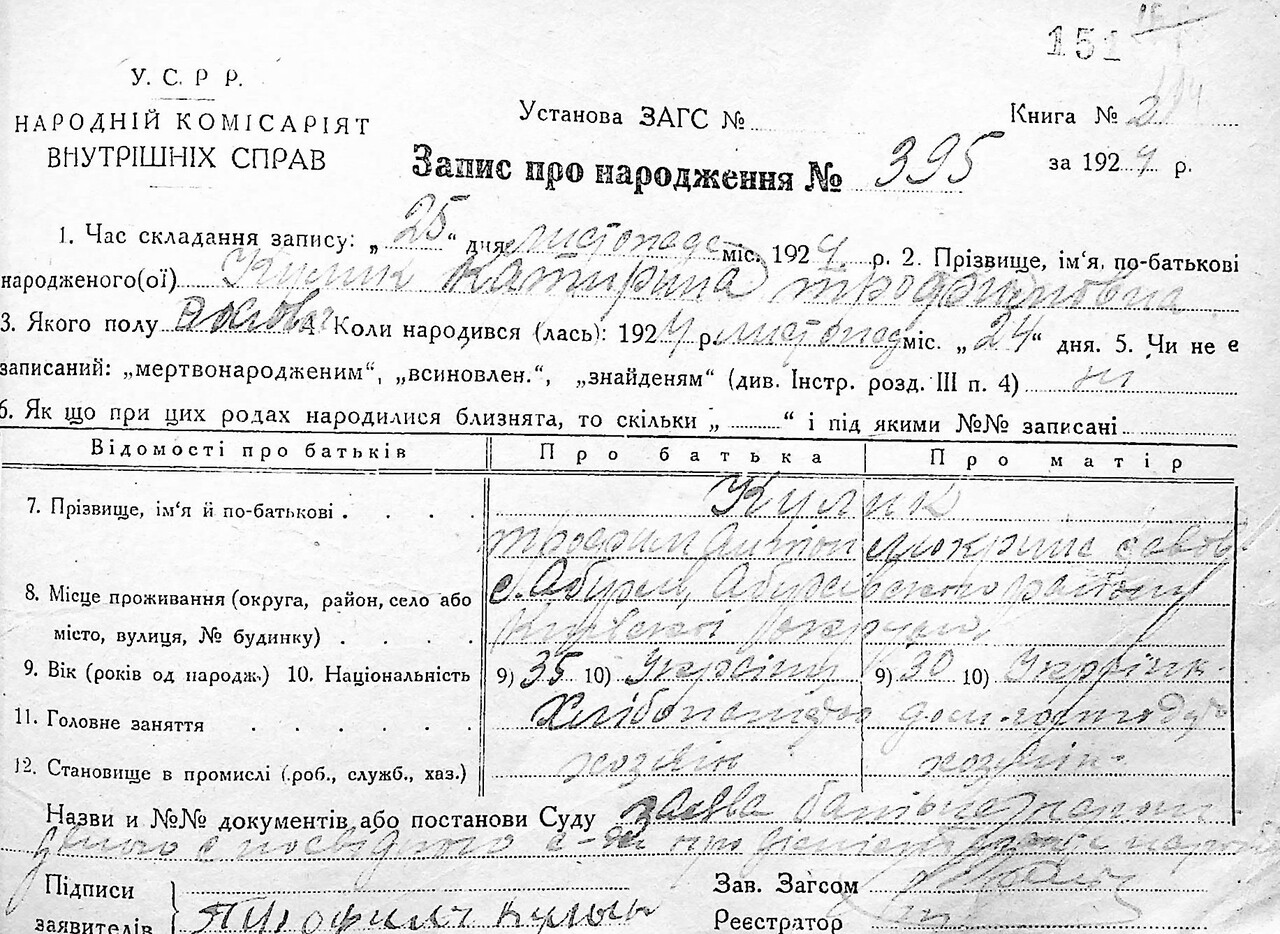 151
У. С. Р Р.
НАРОДНІЙ КОМІСАРІЯТ
ВНУТРІШНІХ СПРАВ
Установа ЗАГС №
Книга № 2
за 1924 р.
Запис про народження № 395
1. Час складання запису: „ 25 “ дня листопада міс. 1924 р. 2. Прізвище, ім‘я, по-батькові
народженого(ої) Кулик Катирина Трофимовна
3. Якого полу жіноч 4. Коли народився (лась): 1924 р. листопад міс. „ 24 “ дня. 5. Чи не є
записаний: „мертвонародженим“, „всиновлен.“, „знайденям“ (див. Інстр. розд. III п. 4) ні
6. Як що при цих родах народилися близнята, то скільки „ “ і під якими №№ записані
Відомості про батьків Про батька Про матір
7. Прізвище, ім‘я й по-батькові Кулик
Трофим Антон Мокрина
8. Місце проживання (округа, район, село або
місто, вулиця, № будинку)
9. Вік (років од народж.) 10. Національність 9) 35 10) Українц 9) 30 10) Українк
11. Головне заняття Хлібопашдво
12. Становище в промислі (.роб., служб., хаз.) хозяін хозяін
Назви и №№ документів або постанови Суду заява
Підписи
заявителів Трофим Кулик
Зав. Загсом
Реєстратор